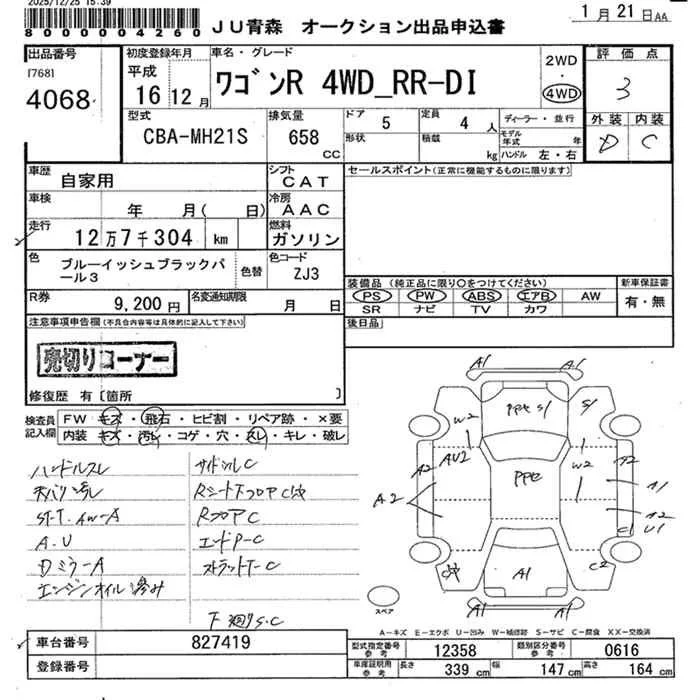 2025/12/25 15:39
8000004260
JU青森 オークション出品申込書
1月21日AA
出品番号
[768]
4068
初度登録年月
平成
16 12月
車名・グレード
ワゴンR 4WD_RR-DI
2WD
・
4WD
評価点
3
外装 内装
D C
型式
CBA-MH21S
排気量
658
CC
ドア 5
形状
定員 4 人
積載 kg
ディーラー・並行
モデル年式 年
ハンドル 左・右
車歴
自家用
シフト
CAT
セールスポイント(正常に機能するものに限ります)
車検
年 月( 日)
冷房
AAC
走行
12万7千304 km
燃料
ガソリン
色
ブルーイッシュブラックパール3
色替
色コード
ZJ3
装備品 (純正品に限り○をつけてください)
PS PW ABS エアB AW
SR ナビ TV カワ
新車保証書
有・無
R券
9,200円
名変通知期限
月 日
後日品
注意事項申告欄(不具合内容等は具体的に記入して下さい)
売切りコーナー
修復歴 有〔箇所 〕
検査員記入欄
FW キズ・飛石・ヒビ割・リペア跡・×要
内装 キズ・汚レ・コゲ・穴・スレ・キレ・破レ
ハンドルスレ
天バリ汚レ
ST.T. AW-A
A.U
Dミラ-A
エンジンオイル滲み
サイドシルC
Rシート下フロアC
RフロアC
エンドP-C
ストラットT-C
下廻りS.C
A1 A1
W2 PPセ S/ S/
AU2 A2
PPセ W2
A2 A2 A1
A2
C1 U1
A1 C2
A1 A1
スペア
A-キズ E-エクボ U-凹み W-補修跡 S-サビ C-腐食 XX-交換済
車台番号
827419
登録番号
型式指定番号 参考
12358
類別区分番号 参考
0616
車庫証明用 参考
長さ 339 cm
幅 147 cm
高さ 164 cm